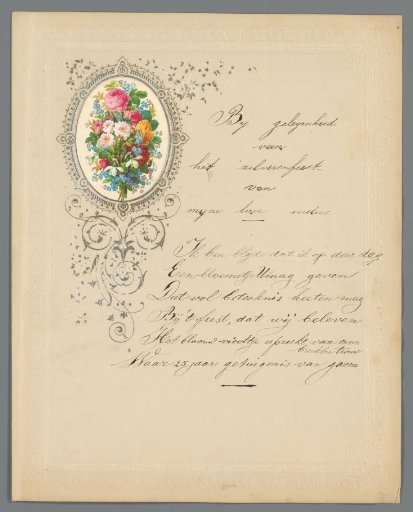 By gelegenheid
van
het zilverenfeest
van
myne lieve ouders
Ik ben blyde dat ik op deez' dag
Een bloemetje U mag geven
Dat vol beteek'nis heeten mag
By 't feest, dat wij beleven
Het blauw viooltje spreekt van uwe
trouw
Waar 25 jaar getuigenis van gaven